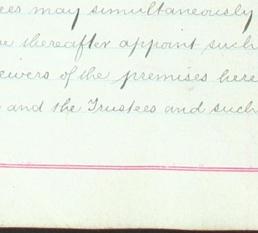 ees may simultaneously
thereafter appoint such
ewers of the premises here
and the Trustees and such